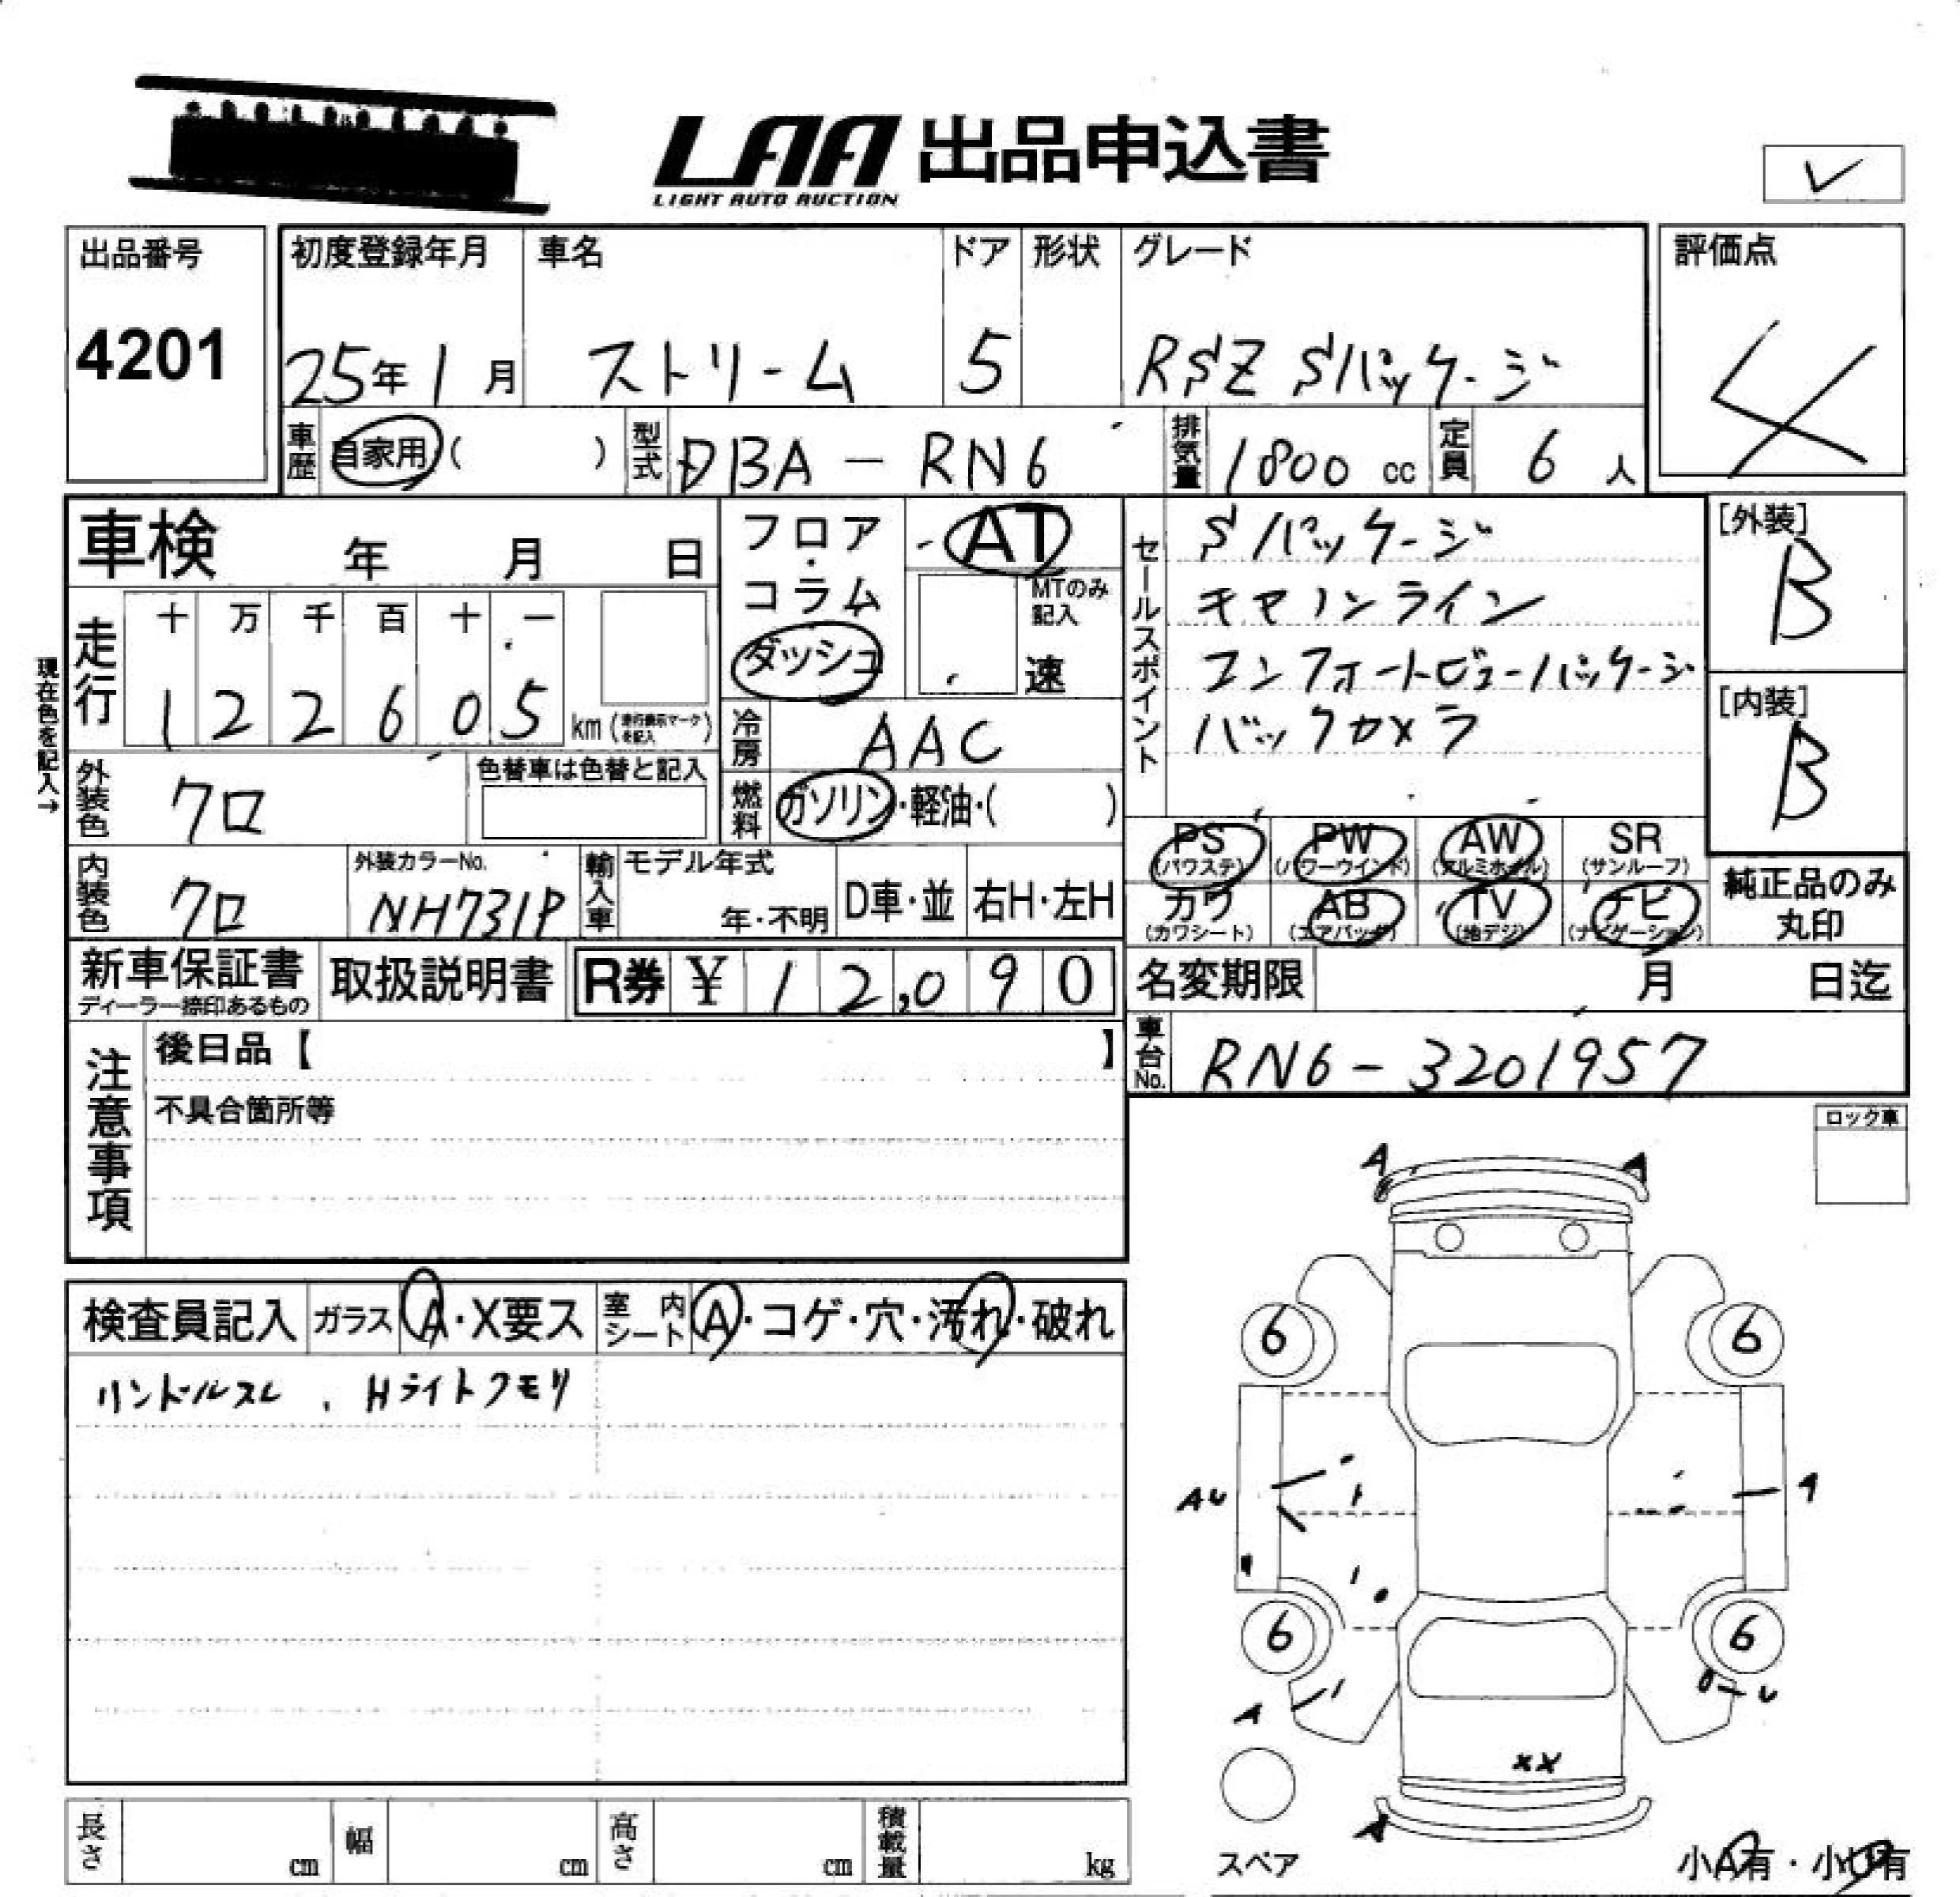 LAA 出品申込書
LIGHT AUTO AUCTION
出品番号
4201
初度登録年月
25年1月
車名
ストリーム
ドア
5
形状
グレード
RSZ Sパッケージ
評価点
4
車歴
自家用( )
型式
DBA-RN6
排気量
1800 cc
定員
6人
車検 年 月 日
フロア・コラム
ダッシュ
AT
MTのみ記入
速
セールスポイント
Sパッケージ
キャノンライン
コンフォートビューパッケージ
バックカメラ
[外装]
B
[内装]
B
現在色を記入→
走行
十 万 千 百 十 一
1 2 2 6 0 5 km
冷房
AAC
外装色
クロ
色替車は色替と記入
燃料
ガソリン・軽油・( )
PS (パワステ)
PW (パワーウインド)
AW (アルミホイル)
SR (サンルーフ)
カワ (カワシート)
AB (エアバック)
TV (地デジ)
ナビ (ナビゲーション)
純正品のみ
丸印
内装色
クロ
外装カラーNo.
NH731P
輸入車
モデル年式
年・不明
D車・並
右H・左H
新車保証書
ディーラー捺印あるもの
取扱説明書
R券 ¥ 12,090
名変期限 月 日迄
車台No.
RN6-3201957
注意事項
後日品【 】
不具合箇所等
ロック車
検査員記入
ガラス A・X要ス
室内シート A・コゲ・穴・汚れ・破れ
ハンドルスレ、Hライトクモリ
A A
6 6
AU
6 6
A
XX
スペア
小A有・小U有
長さ cm
幅 cm
高さ cm
積載量 kg